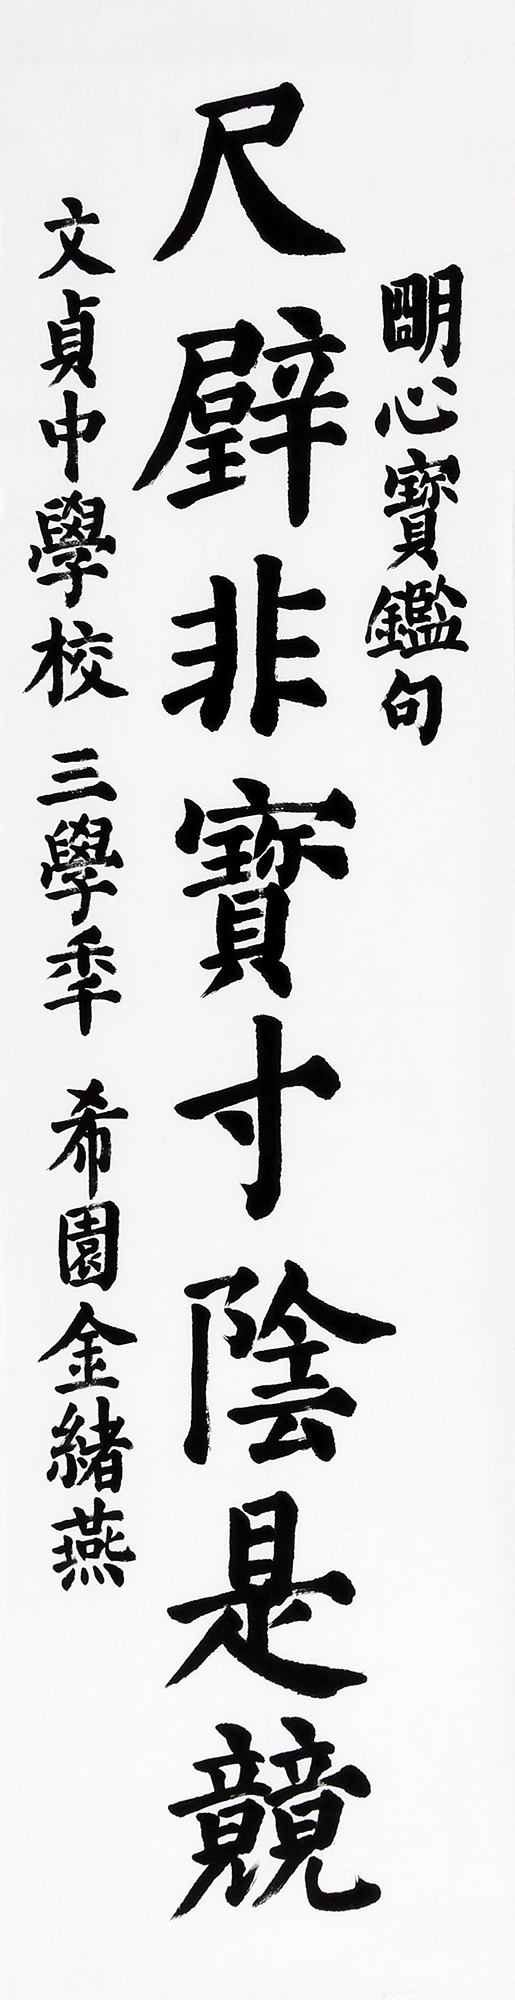 朙心寶鑑句
尺璧非寶寸陰是競
文貞中學校 三學秊 希園金緒燕